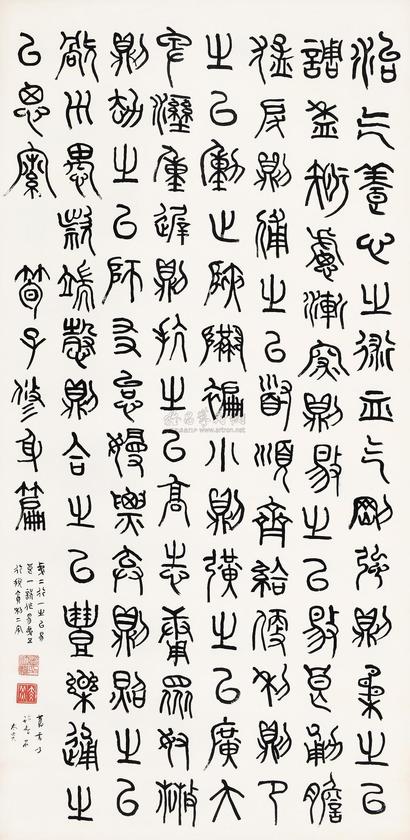 治气養心之術血气剛強則柔之以
調盉知慮漸深則敡之以敡良勇膽
猛戾則輔之以道順齊給便利則節
之以動止狹隘褊小則彉之以廣大
卑溼重遲則抗之以高志庸眾奴散
則劫之以師友怠嫚僄棄則照之以
禍巛愚款端愨則合之以豐樂通之
以思索 荀子修身篇